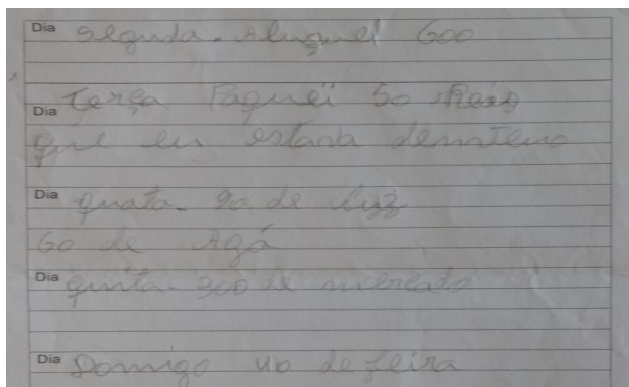 Dia segunda. Aluguel 600
Dia terça Paguei 50 Reais
que eu estava
Dia quata- 90 de luz
60 de Agá
Dia quita- 300 de mercado
Dia Domigo 40 de feira